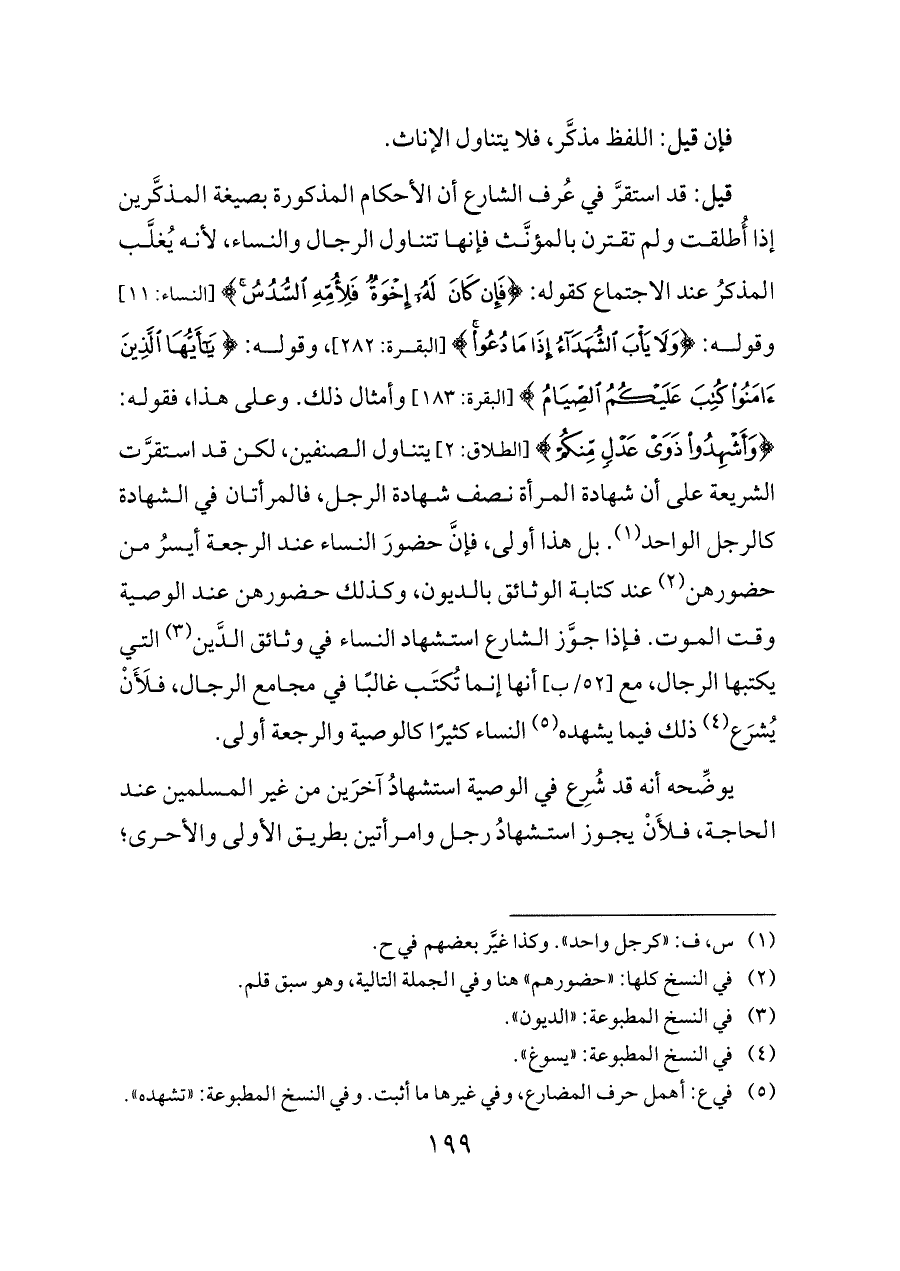 فإن قيل: اللفظ مذكَّر، فلا يتناول الإناث.
قيل: قد استقرَّ في عُرف الشارع أن الأحكام المذكورة بصيغة المذكَّرين
إذا أُطلقت ولم تقترن بالمؤنَّث فإنها تتناول الرجال والنساء، لأنه يُغلَّب
المذكرُ عند الاجتماع كقوله: ﴿فَإِن كَانَ لَهُۥٓ إِخْوَةٌ فَلِأُمِّهِ ٱلسُّدُسُ ۚ﴾ [النساء: ١١]
وقوله: ﴿وَلَا يَأْبَ ٱلشُّهَدَآءُ إِذَا مَا دُعُوا۟ ۚ﴾ [البقرة: ٢٨٢]، وقوله: ﴿ يَٰٓأَيُّهَا ٱلَّذِينَ
ءَامَنُوا۟ كُتِبَ عَلَيْكُمُ ٱلصِّيَامُ ﴾ [البقرة: ١٨٣] وأمثال ذلك. وعلى هذا، فقوله:
﴿وَأَشْهِدُوا۟ ذَوَىْ عَدْلٍ مِّنكُمْ﴾ [الطلاق: ٢] يتناول الصنفين، لكن قد استقرَّت
الشريعة على أن شهادة المرأة نصف شهادة الرجل، فالمرأتان في الشهادة
كالرجل الواحد(١). بل هذا أولى، فإنَّ حضورَ النساء عند الرجعة أيسرُ من
حضورهن(٢) عند كتابة الوثائق بالديون، وكذلك حضورهن عند الوصية
وقت الموت. فإذا جوَّز الشارع استشهاد النساء في وثائق الدَّين(٣) التي
يكتبها الرجال، مع [٥٢/ ب] أنها إنما تُكتَب غالبًا في مجامع الرجال، فلَأَنْ
يُشرَع(٤) ذلك فيما يشهده(٥) النساء كثيرًا كالوصية والرجعة أولى.
يوضِّحه أنه قد شُرِع في الوصية استشهادُ آخرَين من غير المسلمين عند
الحاجة، فلأَنْ يجوز استشهادُ رجل وامرأتين بطريق الأولى والأحرى؛
(١) س، ف: «كرجل واحد». وكذا غيَّر بعضهم في ح.
(٢) في النسخ كلها: «حضورهم» هنا وفي الجملة التالية، وهو سبق قلم.
(٣) في النسخ المطبوعة: «الديون».
(٤) في النسخ المطبوعة: «يسوغ».
(٥) في ع: أهمل حرف المضارع، وفي غيرها ما أثبت. وفي النسخ المطبوعة: «تشهده».
١٩٩